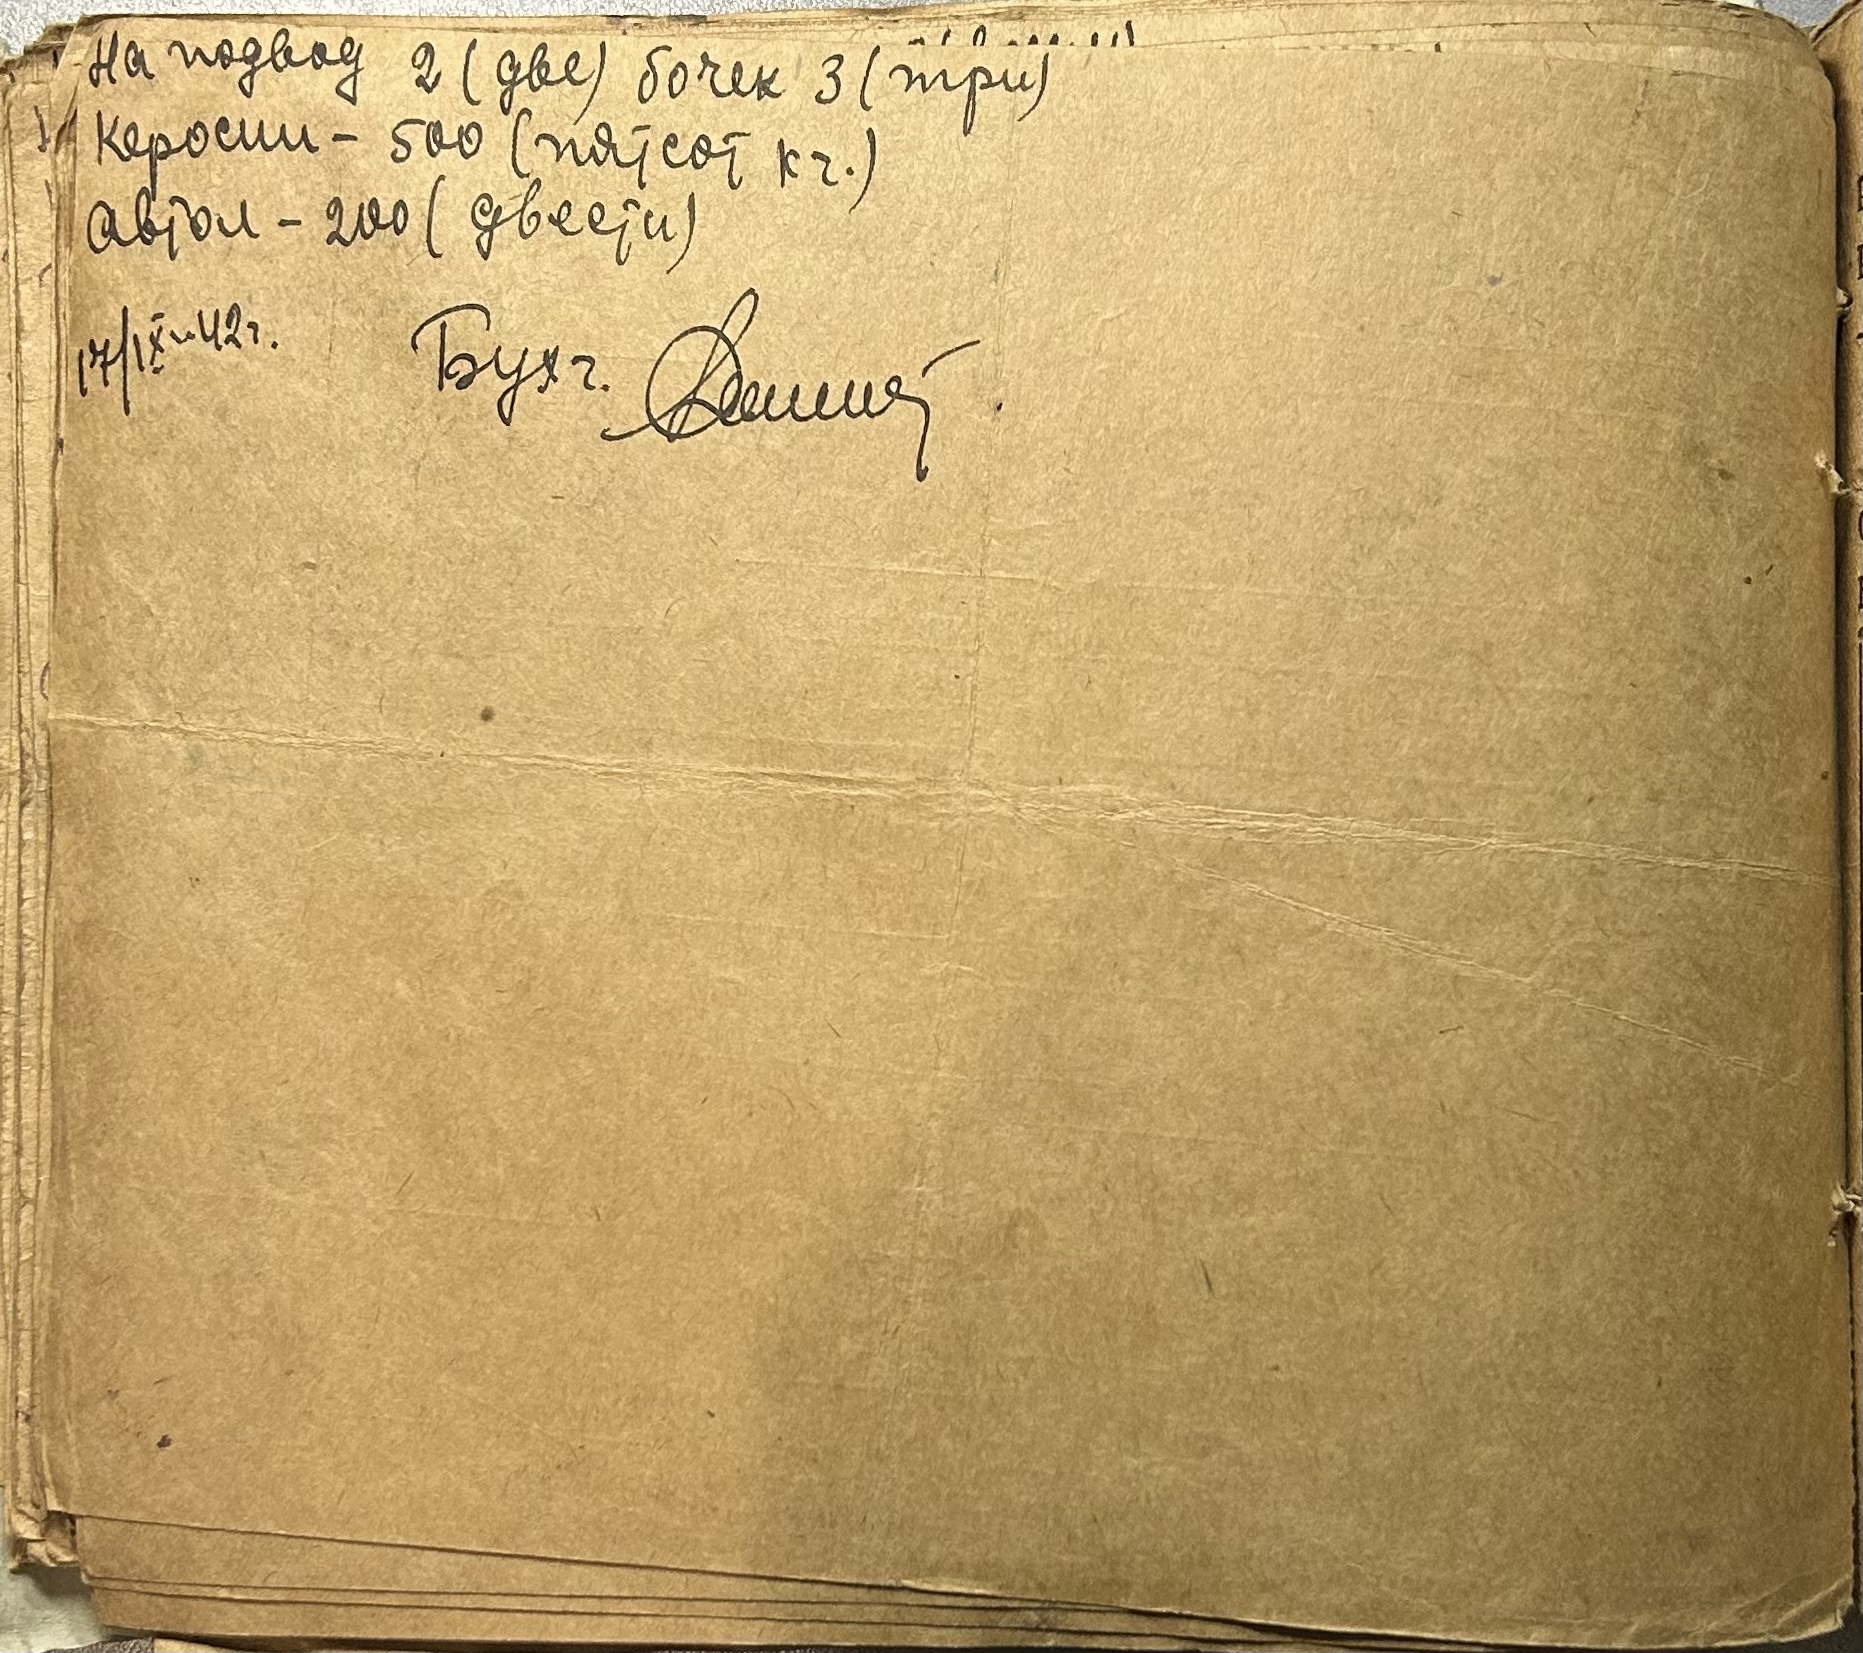 На подвод 2 (две) бочек 3 (три)
Керосин - 500 (пятсот кг.)
Автол - 200 (двести)
17/IX-42г. Бухг.